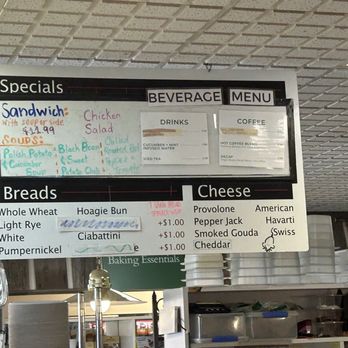 Specials
BEVERAGE MENU
Sandwich:
with soup or side
$11.99
Chicken
Salad
SOUPS:
Polish Potato
& Cucumber
Soup
Black Bean
& Sweet
Potato Chili
Chilled
Roasted
Tomato
DRINKS
CUCUMBER + MINT
INFUSED WATER
ICED TEA
COFFEE
HOT COFFEE
DECAF
Breads
Whole Wheat Hoagie Bun
Light Rye +$1.00
White Ciabattini +$1.00
Pumpernickel +$1.00
Cheese
Provolone American
Pepper Jack Havarti
Smoked Gouda Swiss
Cheddar
Baking Essentials